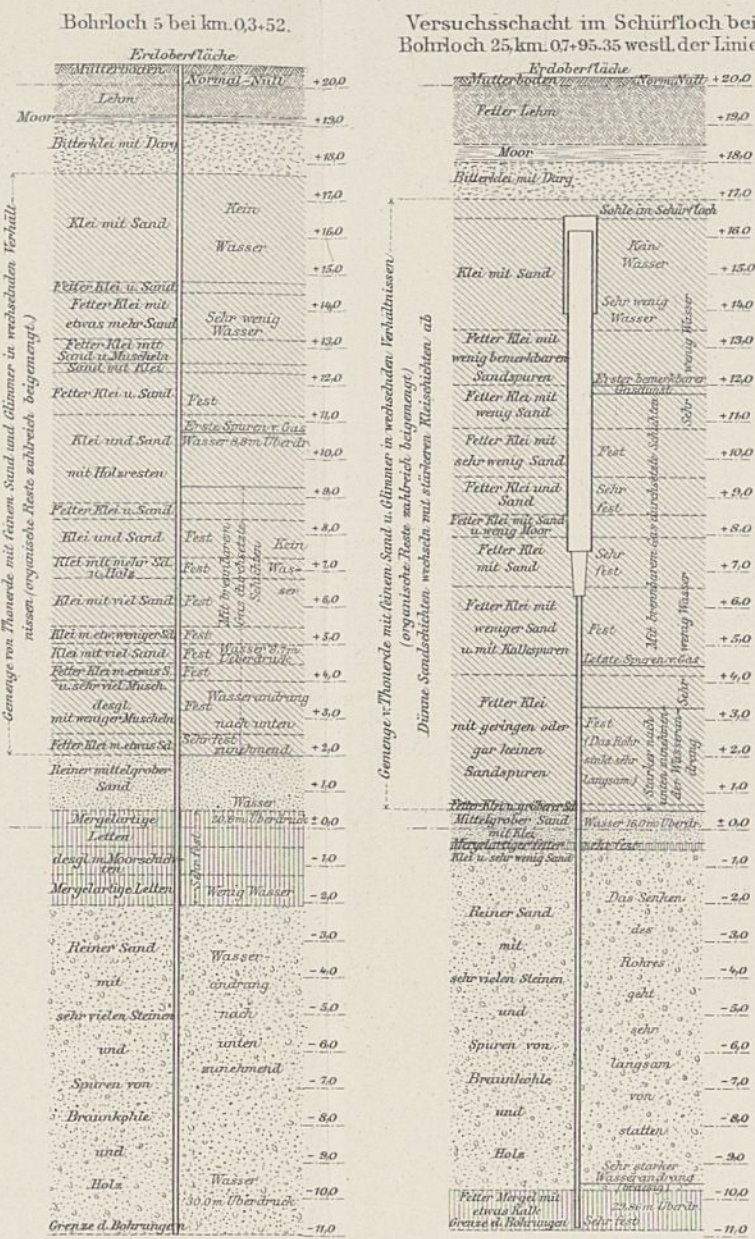 Bohrloch 5 bei km. 0,3+52.
Erdoberfläche
Mutterboden
Normal-Null
+20,0
Lehm
Moor
+19,0
Bitterklei mit Darg
+18,0
+17,0
Klei mit Sand
Kein
Wasser
+16,0
+15,0
Fetter Klei u. Sand
Fetter Klei mit
etwas mehr Sand
Sehr wenig
Wasser
+14,0
Fetter Klei mit
Sand u. Muscheln
+13,0
Sand mit Klei
+12,0
Fetter Klei u. Sand
Fest
+11,0
Erste Spuren v. Gas
Wasser 8,8m Überdr.
Klei und Sand
mit Holzresten
+10,0
+9,0
Fetter Klei u. Sand
Klei und Sand
Fest
+8,0
Klei mit mehr Sd.
u. Holz
Fest
+7,0
Klei mit viel Sand
Fest
+6,0
Mit brennbarem
Gas durchsetzte
Schichten
Kein
Was-
ser
Klei m. etw. weniger Sd.
Fest
+5,0
Klei mit viel Sand
Fest
Wasser 8,7m
Ueberdruck
Fetter Klei m. etwas S.
Fest
+4,0
u. sehr viel Musch.
desgl.
mit weniger Muscheln
Fest
Wasserandrang
nach unten
zunehmend
+3,0
Fetter Klei m. etwas Sd.
Sehr fest
+2,0
Reiner mittelgrober
Sand
+1,0
Wasser
20,8m Überdruck
±0,0
Mergelartige
Letten
desgl. m. Moorschich-
ten
-1,0
Mergelartige Letten
Sehr fest
Wenig Wasser
-2,0
Reiner Sand
mit
sehr vielen Steinen
und
Spuren von
Braunkohle
und
Holz
Wasser-
andrang
nach
unten
zunehmend
-3,0
-4,0
-5,0
-6,0
-7,0
-8,0
-9,0
Wasser
30,0m Überdruck
-10,0
Grenze d. Bohrungen
-11,0
Gemenge von Thonerde mit feinem Sand und Glimmer in wechselnden Verhält-
nissen (organische Reste zahlreich beigemengt.)
Versuchsschacht im Schürfloch bei
Bohrloch 25, km. 0,7+95.35 westl. der Linie
Erdoberfläche
Mutterboden
Norm. Null
+20,0
Fetter Lehm
+19,0
Moor
+18,0
Bitterklei mit Darg
+17,0
Sohle im Schürfloch
+16,0
Klei mit Sand
Kein
Wasser
+15,0
Sehr wenig
Wasser
+14,0
Fetter Klei mit
wenig bemerkbaren
Sandspuren
+13,0
Erster bemerkbarer
Gasdunst
+12,0
Fetter Klei mit
wenig Sand
+11,0
Fetter Klei mit
sehr wenig Sand
Fest
+10,0
Fetter Klei und
Sand
Sehr
fest
+9,0
Fetter Klei mit Sand
u. wenig Moor
+8,0
Fetter Klei
mit Sand
Sehr
fest
+7,0
Fetter Klei mit
weniger Sand
u. mit Kalkspuren
+6,0
Fest
+5,0
Letzte Spuren v. Gas
+4,0
Mit brennbarem Gas durchsetzte Schichten
Sehr wenig Wasser
Sehr wenig Wasser
Fetter Klei
mit geringen oder
gar keinen
Sandspuren
Fest
(Das Rohr
sinkt sehr
langsam)
+3,0
+2,0
+1,0
Starker nach
unten zunehmen-
der Wasseran-
drang
Fetter Klei u. gröberer Sd.
Mittelgrober Sand
mit Klei
Wasser 16,0m Überdr.
±0,0
Mergelartiger fetter
Klei u. sehr wenig Sand
sehr fest
-1,0
Reiner Sand
mit
sehr vielen Steinen
und
Spuren von
Braunkohle
und
Holz
Das Senken
des
Rohres
geht
sehr
langsam
von
statten
-2,0
-3,0
-4,0
-5,0
-6,0
-7,0
-8,0
-9,0
Sehr starker
Wasserandrang
-10,0
Fetter Mergel mit
etwas Kalk
Grenze d. Bohrungen
29,86m Überdr.
Sehr fest
-11,0
Gemenge v. Thonerde mit feinem Sand u. Glimmer in wechselnden Verhältnissen
(organische Reste zahlreich beigemengt)
Dünne Sandschichten wechseln mit stärkeren Kleischichten ab